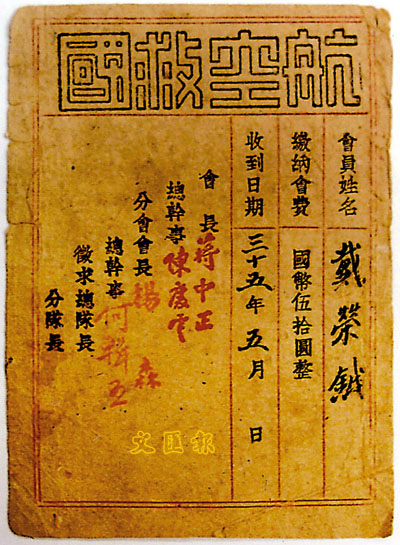 航空救國
會員姓名 戴榮鉞
繳納會費 國幣伍拾圓整
收到日期 三十五年五月 日
會長 蔣中正
總幹事 陳慶雲
分會會長 楊森
總幹事 何輯五
徵求總隊長
分隊長
文匯報